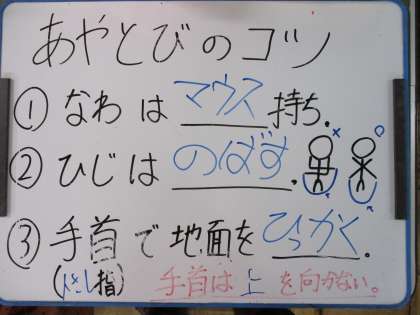 あやとびのコツ
① なわは マウス 持ち.
② ひじは のばす.
③ 手首で地面をひっかく.
(人さし指) 手首は上を向かない。